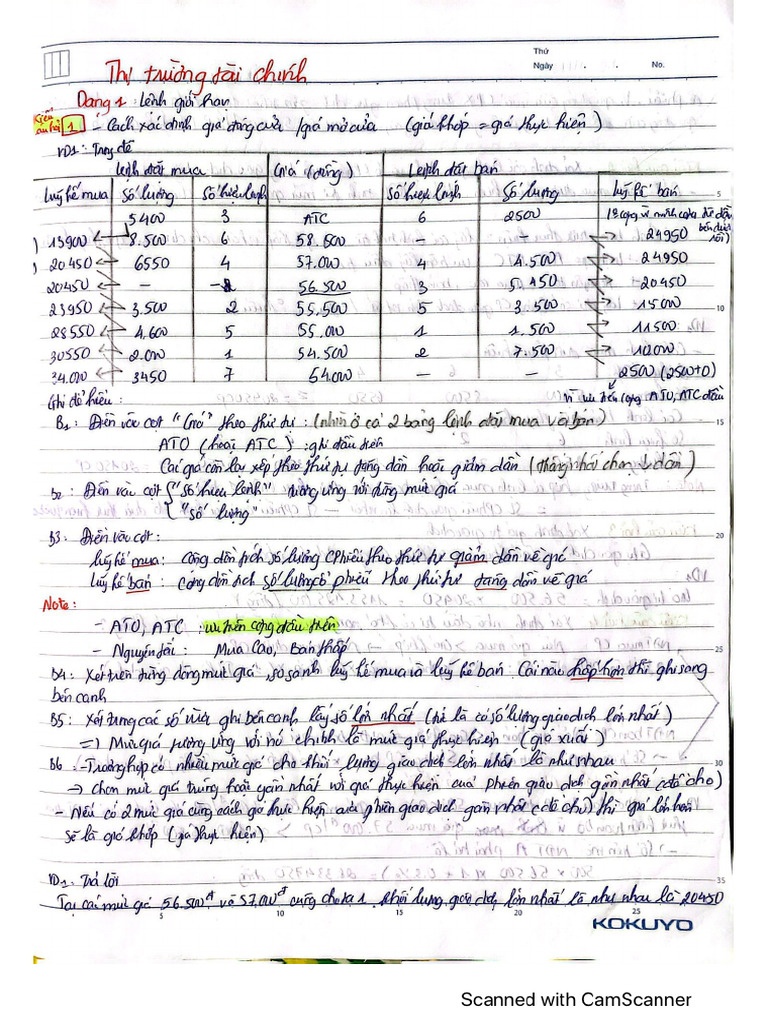 Thứ
Ngày No.
Thị trường tài chính
Dạng 1: Lệnh giới hạn
Câu hỏi 1 - Cách xác định giá đóng cửa / giá mở cửa (giá khớp = giá thực hiện)
VD1: Trong đề
Lệnh đặt mua Giá (đồng) Lệnh đặt bán
Luỹ kế mua Số lượng Số hiệu lệnh Số hiệu lệnh Số lượng Luỹ kế bán
5400 3 ATC 6 2500
13900 8.500 6 58.500 - - 24950
20450 6550 4 57.000 4 4.500 24950
20450 - - 56.500 3 5.450 20450
23950 3.500 2 55.500 5 3.500 15000
28550 4.600 5 55.000 1 1.500 11500
30550 2.000 1 54.500 2 7.500 10000
34.000 3450 7 54.000 - - 2500 (2500+0)
Ghi dễ hiểu: vì ưu tiên cộng ATO, ATC đầu
B1: Điền vào cột "Giá" theo thứ tự: (nhìn ở cả 2 bảng lệnh đặt mua và bán)
ATO (hoặc ATC): ghi đầu tiên
Các giá còn lại xếp theo thứ tự tăng dần hoặc giảm dần (thống nhất chọn ↓ dần)
B2: Điền vào cột { "Số hiệu lệnh" tương ứng với từng mức giá
{ "số lượng"
B3: Điền vào cột:
luỹ kế mua: Cộng dồn tích số lượng CPhiếu theo thứ tự giảm dần về giá
luỹ kế bán: Cộng dồn tích số lượng cổ phiếu theo thứ tự tăng dần về giá
Note:
- ATO, ATC: ưu tiên cộng đầu tiên
- Nguyên tắc: Mua Cao, Bán thấp
B4: Xét trên từng dòng mức giá, so sánh luỹ kế mua và luỹ kế bán. Cái nào thấp hơn thì ghi sang
bên cạnh
B5: Xét từng các số vừa ghi bên cạnh lấy số lớn nhất (thì là có số lượng giao dịch lớn nhất)
=) Mức giá tương ứng với nó chính là mức giá thực hiện (giá xuất)
B6: - Trường hợp có nhiều mức giá cho khối lượng giao dịch lớn nhất là như nhau
→ chọn mức giá trùng hoặc gần nhất với giá thực hiện của phiên giao dịch gần nhất (đề cho)
- Nếu có 2 mức giá cùng cách giá thực hiện của phiên giao dịch gần nhất (đề cho) thì giá lớn hơn
sẽ là giá khớp (giá thực hiện)
VD1: Trả lời
Tại các mức giá 56.500đ và 57.000đ cùng cho ta 1 khối lượng giao dịch lớn nhất là như nhau là 20450
KOKUYO
Scanned with CamScanner